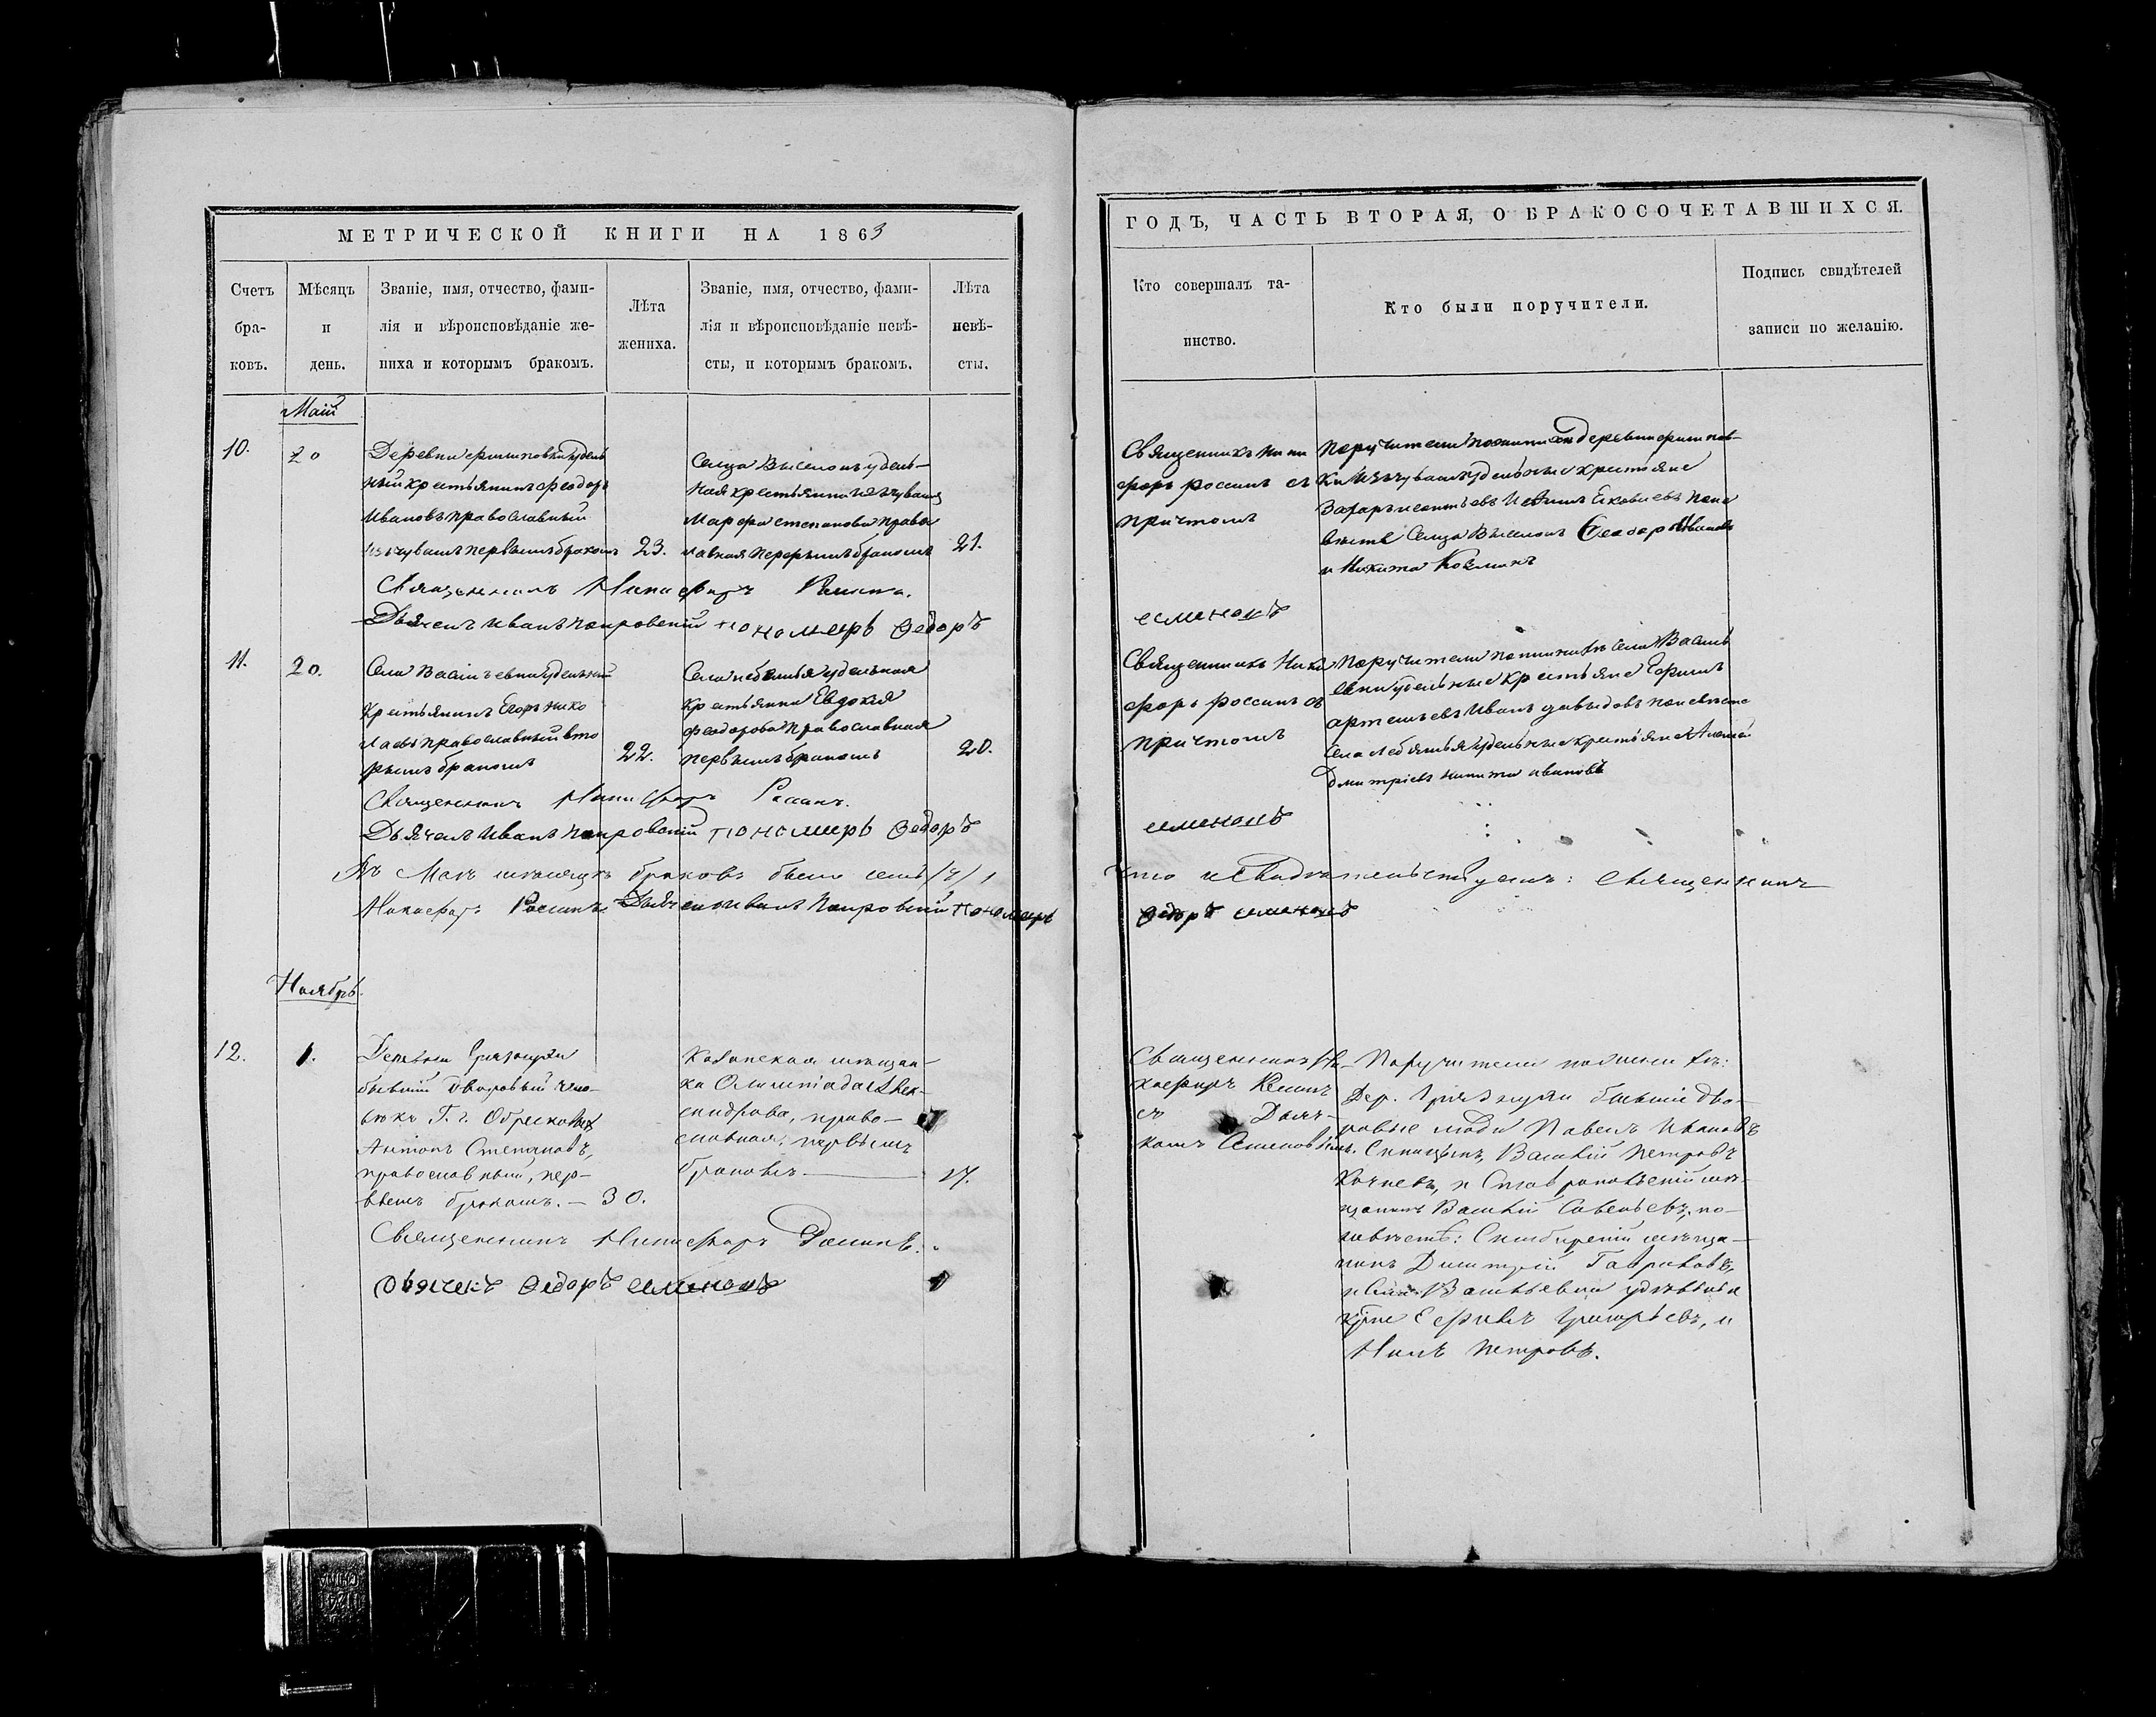 МЕТРИЧЕСКОЙ КНИГИ НА 1863
Счетъ бра-ковъ.
Мѣсяцъ и день.
Званіе, имя, отчество, фами-
лія и вѣроисповѣданіе же-
ниха и которымъ бракомъ.
Лѣта жениха.
Званіе, имя, отчество, фами-
лія и вѣроисповѣданіе невѣ-
сты, и которымъ бракомъ.
Лѣта невѣ-сты.
Маій
10.
20
Деревни удель
ный крестьянинъ Феодоръ
Ивановъ православный
изъ чувашъ первымъ бракомъ
23.
Сельца удель-
ная крестьянка изъ чувашъ
Марфа Степанова правос
лавная первымъ бракомъ
21.
Священникъ Никифоръ
Дьячекъ Иванъ Покровскій пономарь Ѳедоръ
11.
20.
Села Васильевки удельный
крестьянинъ Егоръ Нико
лаевъ православный вто
рымъ бракомъ
22.
Села Лебяжья удельная
крестьянка Евдокия
Феодорова православная
первымъ бракомъ
20.
Священникъ Никифоръ
Дьячекъ Иванъ Покровскій пономарь Ѳедоръ
Въ Маѣ мѣсяцѣ браковъ было семь (7)
Никифоръ Дьячекъ Иванъ Покровскій пономарь
Ноябрь.
12.
1.
Деревни
бывший дворовый чело-
вѣкъ Г. г. Обресковыхъ
Антонъ Степановъ,
православный, пер-
вымъ бракомъ. — 30.
Казанская мѣщан-
ка Олимпіада Алек-
сандрова, право-
славная, первымъ
бракомъ
17.
Священникъ Никифоръ
дьячекъ Ѳедоръ семеновъ
ГОДЪ, ЧАСТЬ ВТОРАЯ, О БРАКОСОЧЕТАВШИХСЯ.
Кто совершалъ та-
инство.
Кто были поручители.
Подпись свидѣтелей
записи по желанію.
Священникъ Ники
форъ съ
причтомъ
Поручители по женихѣ деревни
ки изъ чувашъ удельные крестьяне
вѣстѣ Сельца Феодоръ Ивановъ
и Никита
семеновъ
Священникъ Ники
форъ съ
причтомъ
Поручители по женихѣ села Василь
евки удельные крестьяне Ефимъ
артемьевъ Иванъ давыдовъ по невѣсте
села Лебяжья удельные крестьяне Алексей
Дмитріевъ никита ивановъ
семеновъ
Что и свидѣтельствуемъ: священникъ
Ѳедоръ семеновъ
Священникъ Ни-
кифоръ
съ Дьяч-
комъ Семеновымъ.
Поручители по женихѣ:
Дер. бывшіе дво-
ровые люди Павелъ Ивановъ
Василій Петровъ
и Ставропольскій мѣ-
щанинъ Василій Савельевъ, по
невѣстѣ: Симбирскій мѣща-
нинъ Димитрій Гавриловъ,
и Села Васильевки удѣльные
кр-не Ефимъ Григорьевъ, и
Нилъ Петровъ.